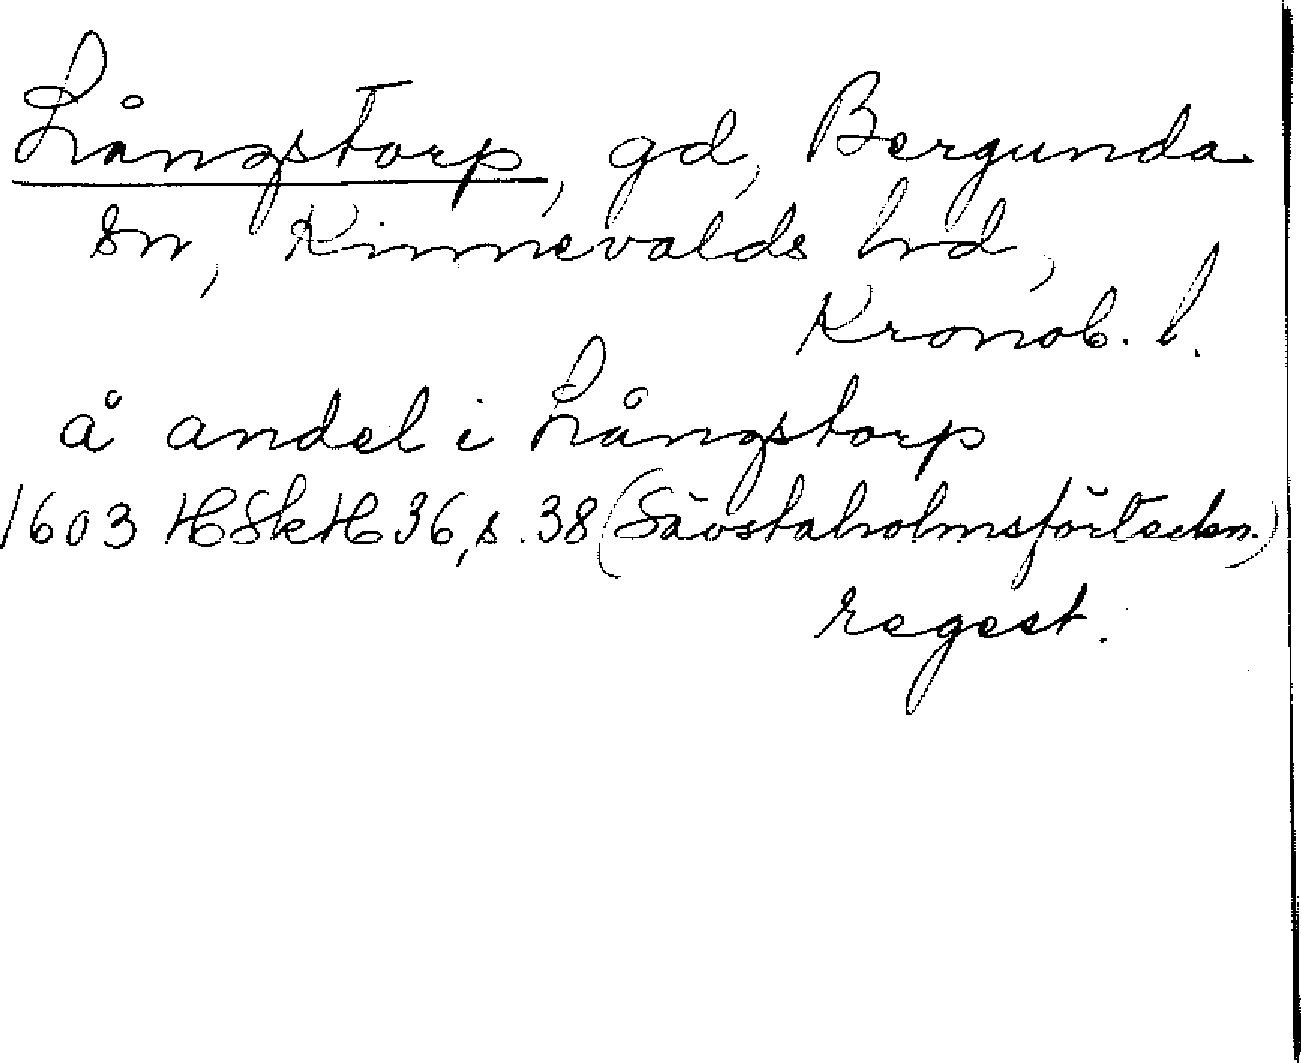 Långstorp, gd, Bergunda
sn, Kinnevalds hd,
Kronob. l.
å andel i Långstorp
1603 HSkH 36, s. 38 (Sävstaholmsförteckn.)
regest.